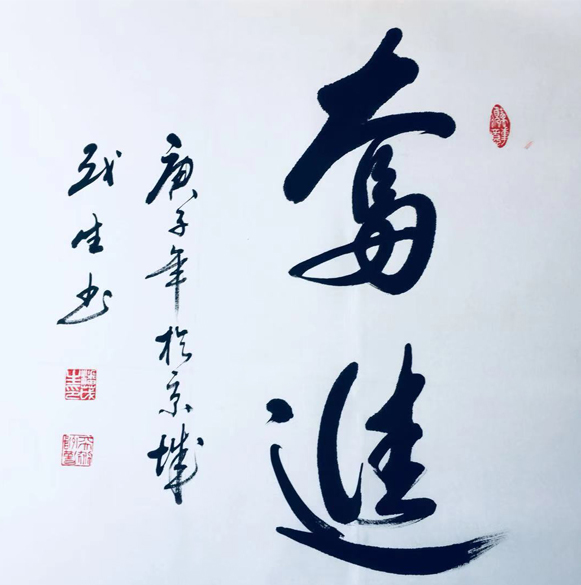 奮進
庚子年於京城
战生书